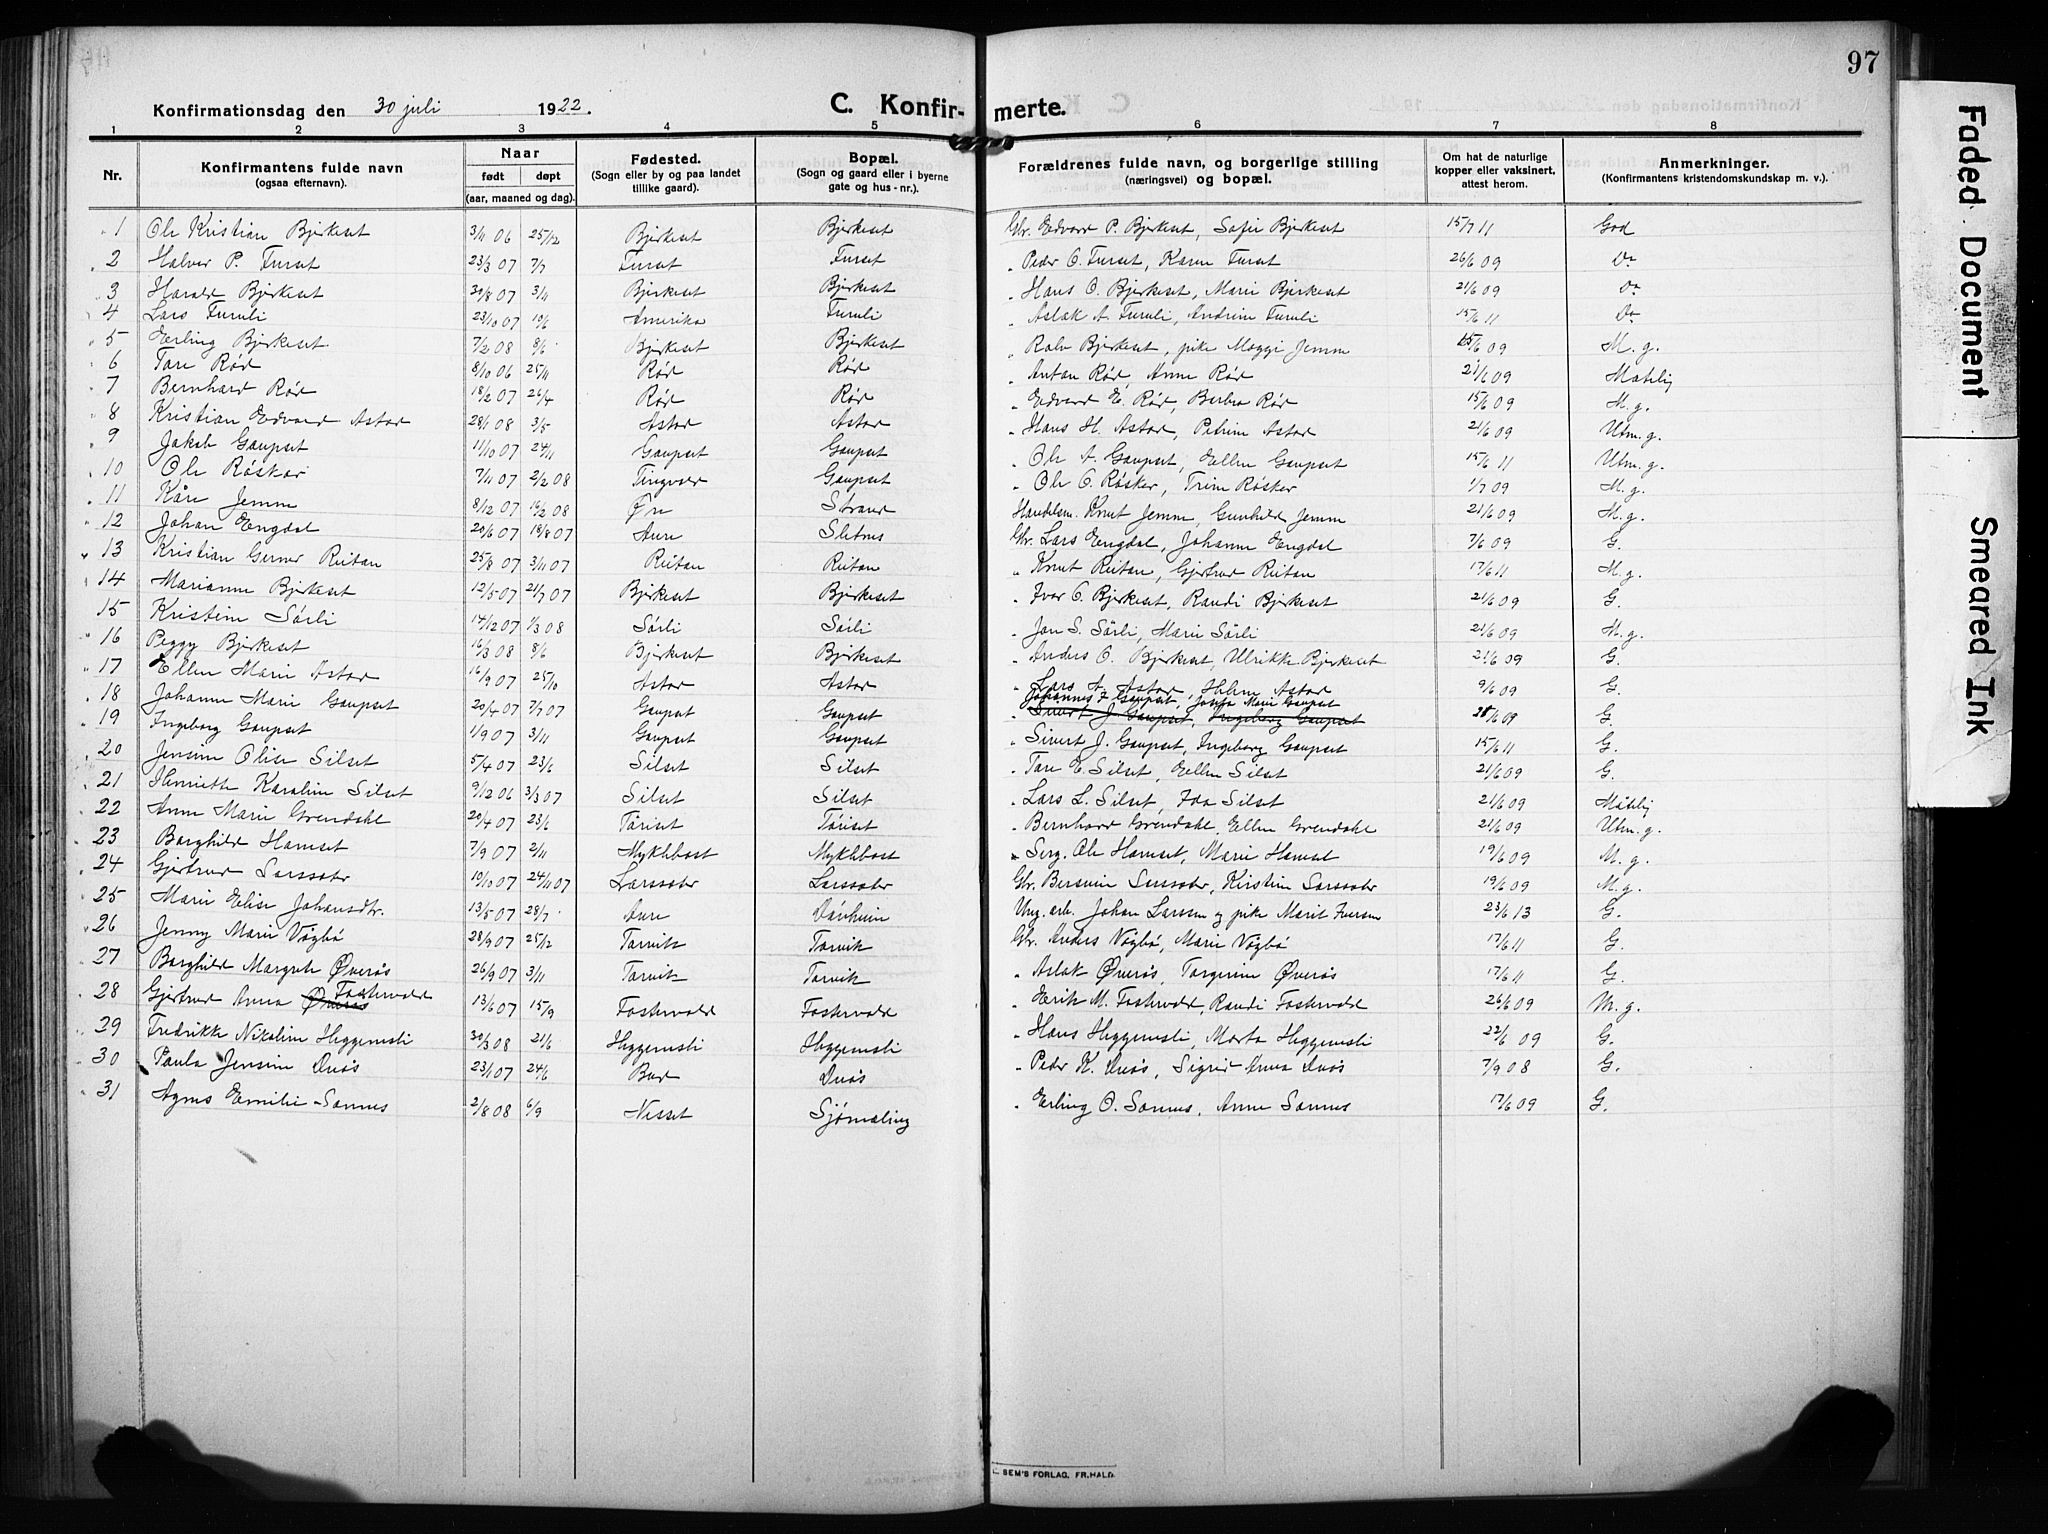 97
Konfirmationsdag den 30 juli 1922.
C. Konfir-merte.
1 2 3 4 5 6 7 8
Nr.
Konfirmantens fulde navn
(ogsaa efternavn).
Naar
født døpt
(aar, maaned og dag).
Fødested.
(Sogn eller by og paa landet
tillike gaard).
Bopæl.
(Sogn og gaard eller i byerne
gate og hus-nr.).
Forældrenes fulde navn, og borgerlige stilling
(næringsvei) og bopæl.
Om hat de naturlige
kopper eller vaksinert,
attest herom.
Anmerkninger.
(Konfirmantens kristendomskundskap m. v.).
1 Ole Kristian Bjerkeset 3/11 06 25/12 Bjerkeset Bjerkeset Gbr. Edvard P. Bjerkeset, Sofie Bjerkeset 15/7 11 God
2 Halvor P. Furset 23/3 07 7/7 Furset Furset " Peder O. Furset, Karen Furset 26/6 09 Do
3 Harald Bjerkeset 30/8 07 3/11 Bjerkeset Bjerkeset " Hans O. Bjerkeset, Marie Bjerkeset 21/6 09 Do
4 Lars Furuli 23/10 07 19/6 Amerika Furuli " Aslak A. Furuli, Andrine Furuli 15/6 11 Do
5 Erling Bjerkeset 7/2 08 8/6 Bjerkeset Bjerkeset " Rolv Bjerkeset, pike Maggi Jemne 15/6 09 M. g.
6 Tore Rød 8/10 06 25/11 Rød Rød " Anton Rød Anne Rød 21/6 09 Måtelig
7 Bernhard Rød 18/2 07 26/4 Rød Rød " Edvard E. Rød, Berbro Rød 15/6 09 M. g.
8 Kristian Edvard Astad 28/1 08 3/5 Astad Astad " Hans H. Astad, Petrine Astad 21/6 09 Utm. g.
9 Jakob Gaupset 11/10 07 24/11 Gaupset Gaupset " Ole A. Gaupset, Ellen Gaupset 15/6 11 Utm. g.
10 Ole Røsker 7/11 07 2/2 08 Tingvold Gaupset " Ole O. Røsker, Trine Røsker 1/7 09 M. g.
11 Kåre Jemne 8/12 07 16/2 08 Øre Strand Handelsm. Knut Jemne, Gunhild Jemne 21/6 09 M. g.
12 Johan Engdal 20/6 07 18/8 07 Aure Sletnes Gbr. Lars Engdal, Johanne Engdal 7/6 09 G.
13 Kristian Gerner Reitan 25/8 07 3/11 07 Reitan Reitan " Knut Reitan, Gjertrud Reitan 17/6 11 M. g.
14 Marianne Bjerkeset 12/5 07 21/7 07 Bjerkeset Bjerkeset " Ivar O. Bjerkeset, Randi Bjerkeset 21/6 09 G.
15 Kristine Sørli 14/12 07 1/3 08 Sørli Sørli " Jon S. Sørli, Marie Sørli 21/6 09 M. g.
16 Peggy Bjerkeset 16/3 08 8/6 Bjerkeset Bjerkeset " Anders O. Bjerkeset, Ulrikke Bjerkeset 21/6 09 G.
17 Ellen Marie Astad 16/9 07 25/10 Astad Astad " Lars A. Astad, Helene Astad 9/6 09 G.
Johannes J Gaupset, Josefa Marie Gaupset
18 Johanne Marie Gaupset 20/4 07 7/7 07 Gaupset Gaupset " Sivert J. Gaupset, Ingeborg Gaupset 28/6 09 G.
19 Ingeborg Gaupset 1/9 07 3/11 Gaupset Gaupset " Sivert J. Gaupset, Ingeborg Gaupset 15/6 11 G.
20 Jensine Olise Silset 5/4 07 23/6 Silset Silset " Tore E. Silset, Ellen Silset 21/6 09 G.
21 Henriette Karoline Silset 9/12 06 3/3 07 Silset Silset " Lars L. Silset, Ida Silset 21/6 09 Måtelig
22 Anne Marie Grendahl 20/4 07 23/6 Tøriset Tøriset " Bernhard Grendahl, Ellen Grendahl 21/6 09 Utm. g.
23 Borghild Hamset 7/9 07 2/11 Myklebost Myklebost " Serg. Ole Hamset, Marie Hamset 19/6 09 M. g.
24 Gjertrud Larssæter 19/10 07 24/11 07 Larssæter Larssæter Gbr. Bersvein Larssæter, Kirstine Larssæter 19/6 09 M. g.
25 Marie Elise Johansdtr. 13/5 07 28/7 Aure Døvheim Ung. arb. Johan Larssen og pike Marit Iversen 23/6 13 G.
26 Jenny Marie Vågbø 28/9 07 25/12 Torvik Torvik Gbr. Anders Vågbø, Marie Vågbø 17/6 11 G.
27 Borghild Margrete Øverås 26/9 07 3/11 Torvik Torvik " Aslak Øverås, Torgerine Øverås 17/6 11 G.
28 Gjertrud Anna Øverås Fostervold 13/6 07 15/9 Fostervold Fostervold " Erik M. Fostervold, Randi Fostervold 26/6 09 M. g.
29 Fredrikke Nikoline Heggemsli 30/3 08 21/6 Heggemsli Heggemsli " Hans Heggemsli, Marta Heggemsli 22/6 09 G.
30 Paula Jensine Duås 23/1 07 24/6 Boe Duås " Peder K. Duås, Sigrid Anna Duås 7/9 08 G.
31 Agnes Emilie Sannes 2/8 08 6/9 Nisset Sjømæling " Erling O. Sannes, Anne Sannes 17/6 09 G.
SEM'S FORLAG, FR.HALD.
Faded Document
Smeared Ink